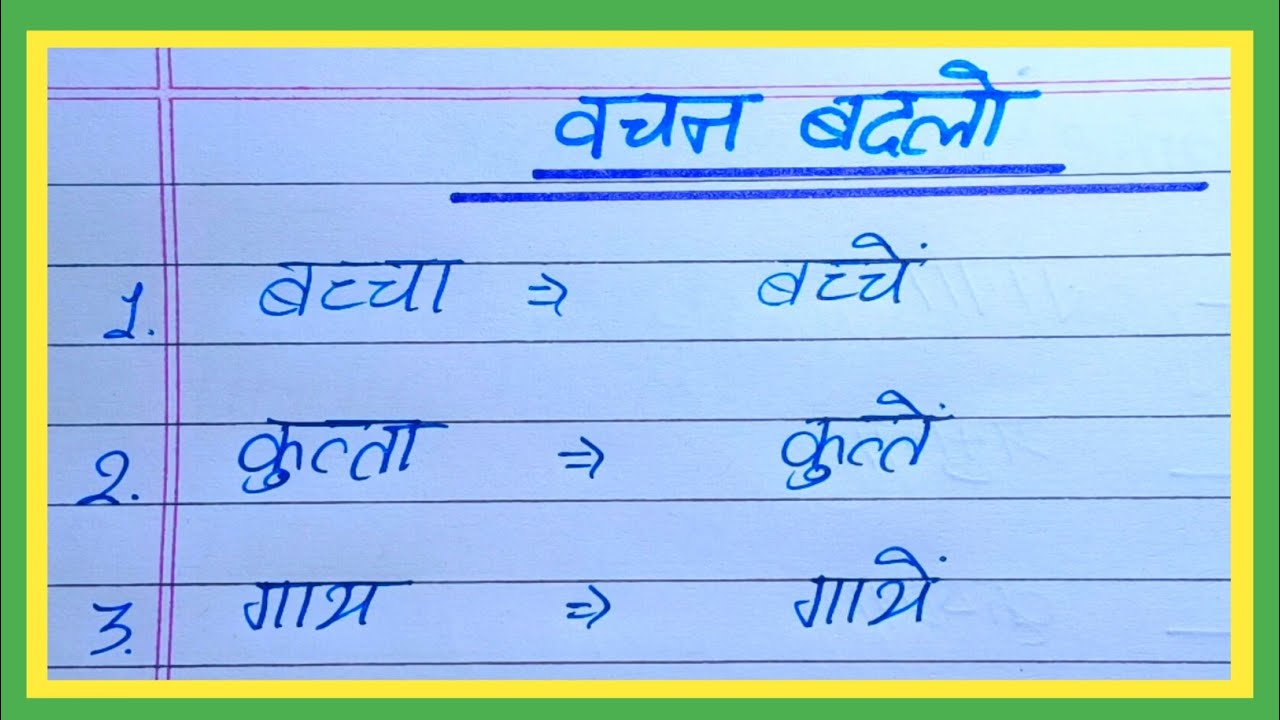 वचन बदलो
१. बच्चा ⇒ बच्चें
२. कुत्ता ⇒ कुत्तें
३. गाय ⇒ गायें